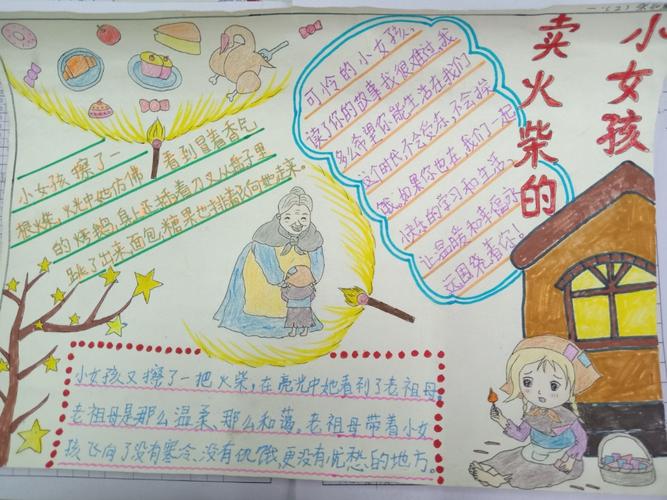 小女孩
卖火柴的
小女孩擦了一
根火柴,火光中她仿佛
看到冒着香气
的烤鹅,身上还插着刀叉从盘子里
跳了出来,面包,糖果也排着队向她走来。
可怜的小女孩,
读了你的故事我很难过,我
多么希望你能生活在我们
这个时代,不会受冻,不会挨
饿。如果你也在,我们一起
快乐的学习和生活。
让温暖和幸福永
远围绕着你!
小女孩又擦了一把火柴,在亮光中她看到了老祖母,
老祖母是那么温柔、那么和蔼。老祖母带着小女
孩飞向了没有寒冷、没有饥饿,更没有忧愁的地方。